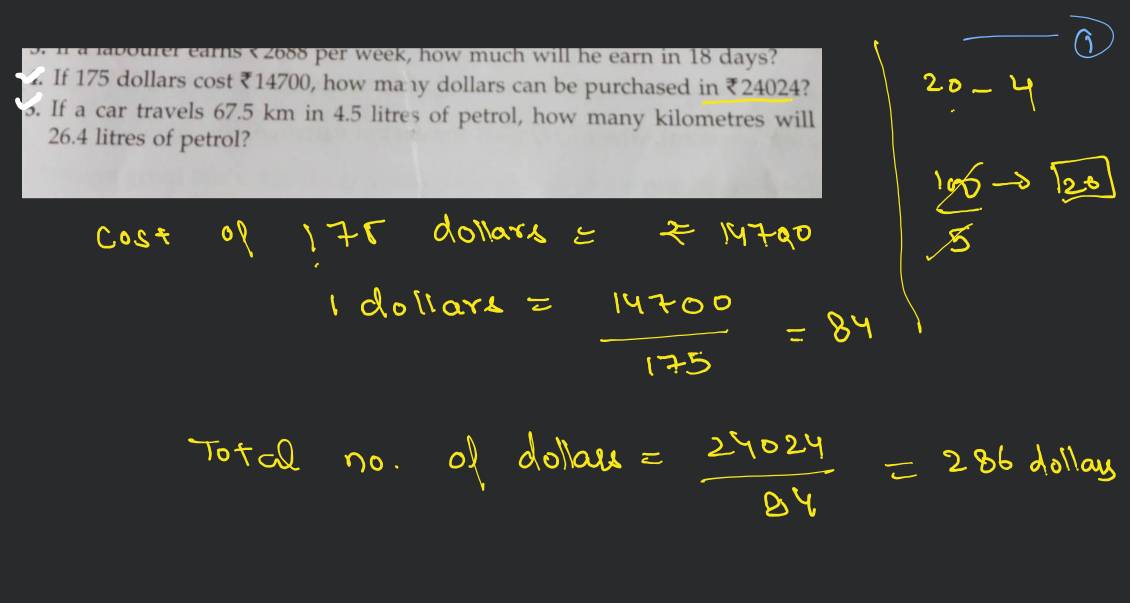 5. If a labourer earns ₹ 2688 per week, how much will he earn in 18 days?
4. If 175 dollars cost ₹ 14700, how many dollars can be purchased in ₹ 24024?
5. If a car travels 67.5 km in 4.5 litres of petrol, how many kilometres will
26.4 litres of petrol?
cost of 175 dollars = ₹ 14700
1 dollars = 14700
175
= 84
Total no. of dollars = 24024
84
= 286 dollars
1
20 - 4
100 → 20
5